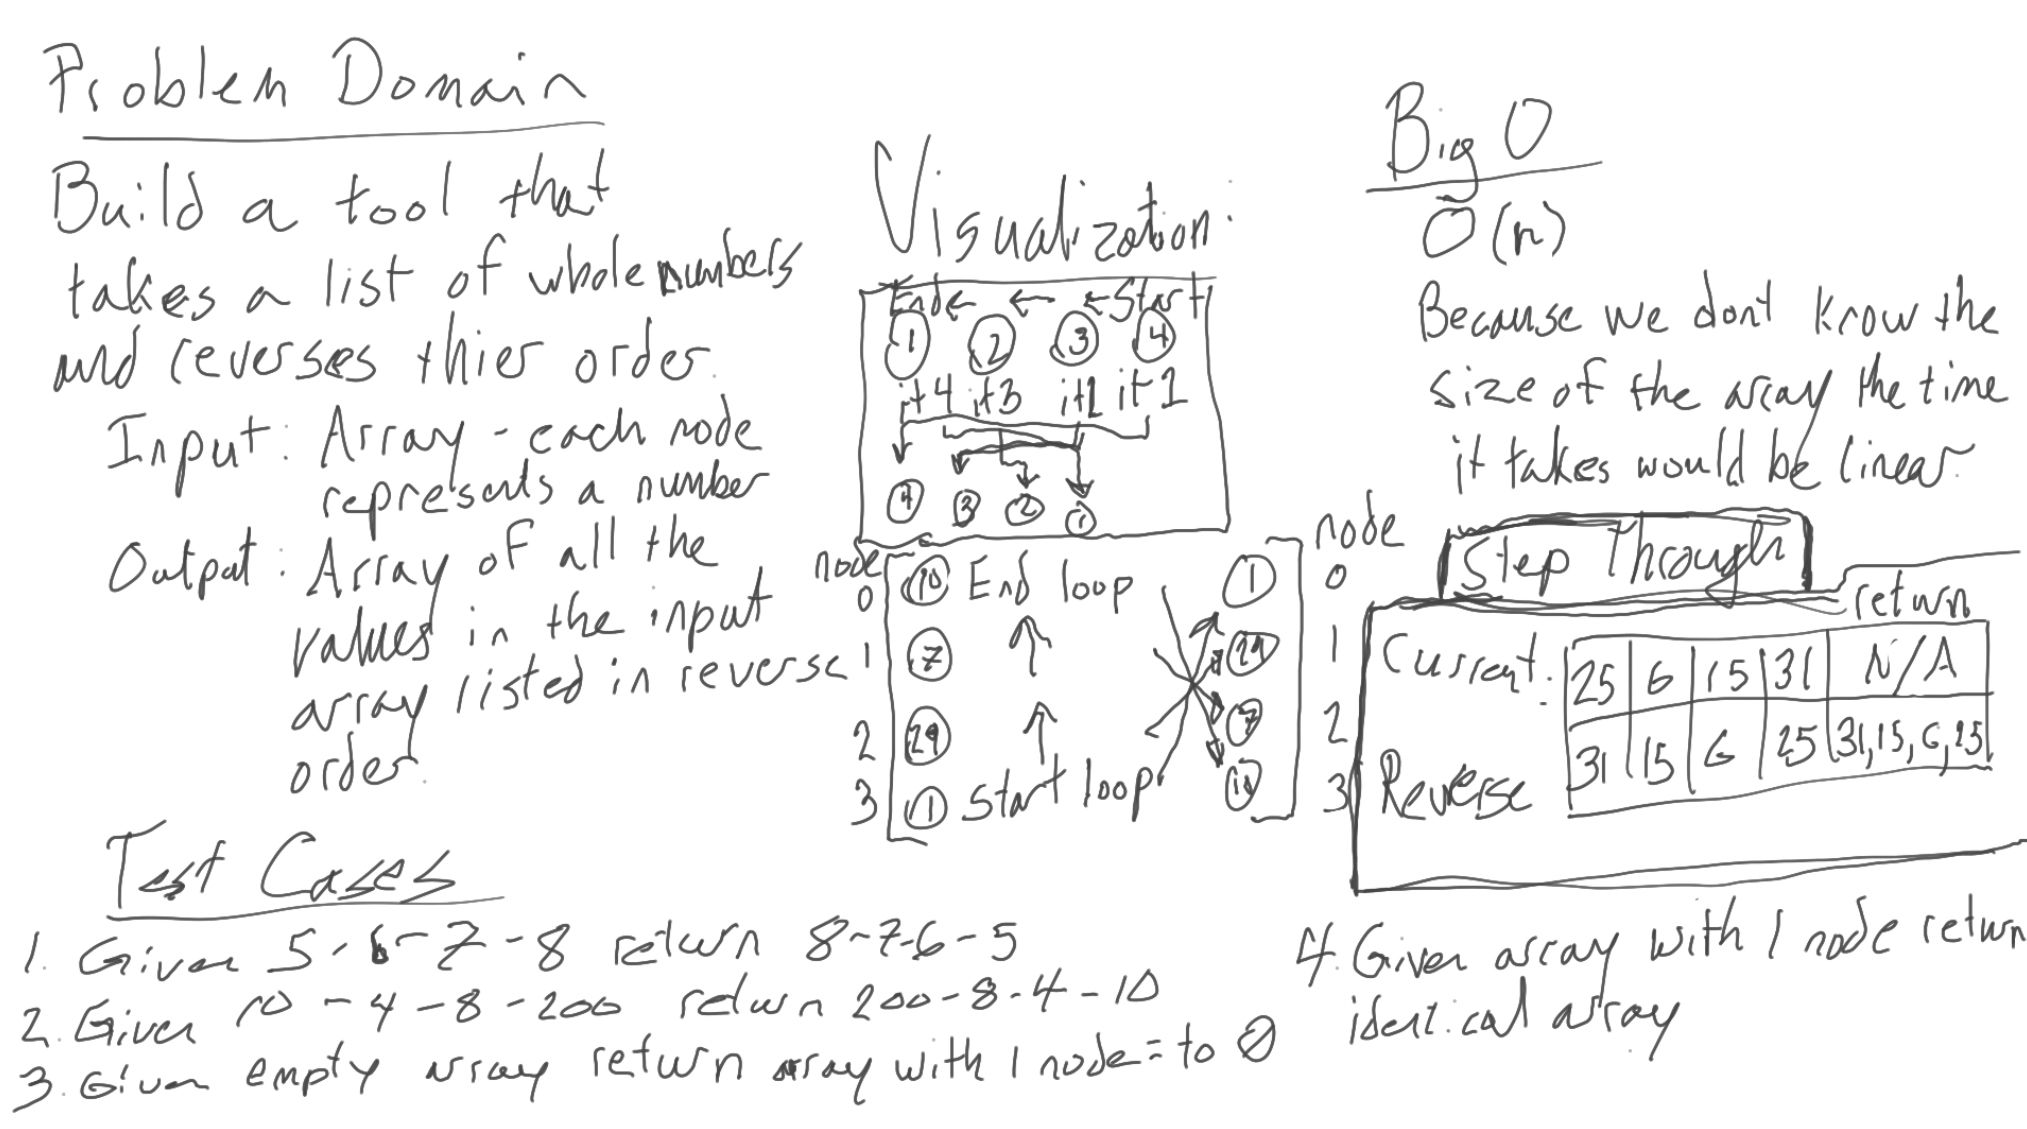 Problem Domain
Build a tool that
takes a list of whole numbers
and reverses thier order.
Input: Array - each node
represents a number
Output: Array of all the
values in the input
array listed in reverse
order.
Visualization:
End ← ← ← Start
1 2 3 4
it4 it3 it1 it1
4 3 2 1
node node
0 10 End loop 1 0
1 7 29 1
2 29 7 2
3 1 Start loop 10 3
Big O
O(n)
Because we dont know the
size of the array the time
it takes would be linear.
Step Through
return
Current: 25 6 15 31 N/A
Reverse 31 15 6 25 31,15,6,25
Test Cases
1. Given 5-6-7-8 return 8-7-6-5
2. Given 10-4-8-200 return 200-8-4-10
3. Given empty array return array with 1 node = to 0
4. Given array with 1 node return
identical array